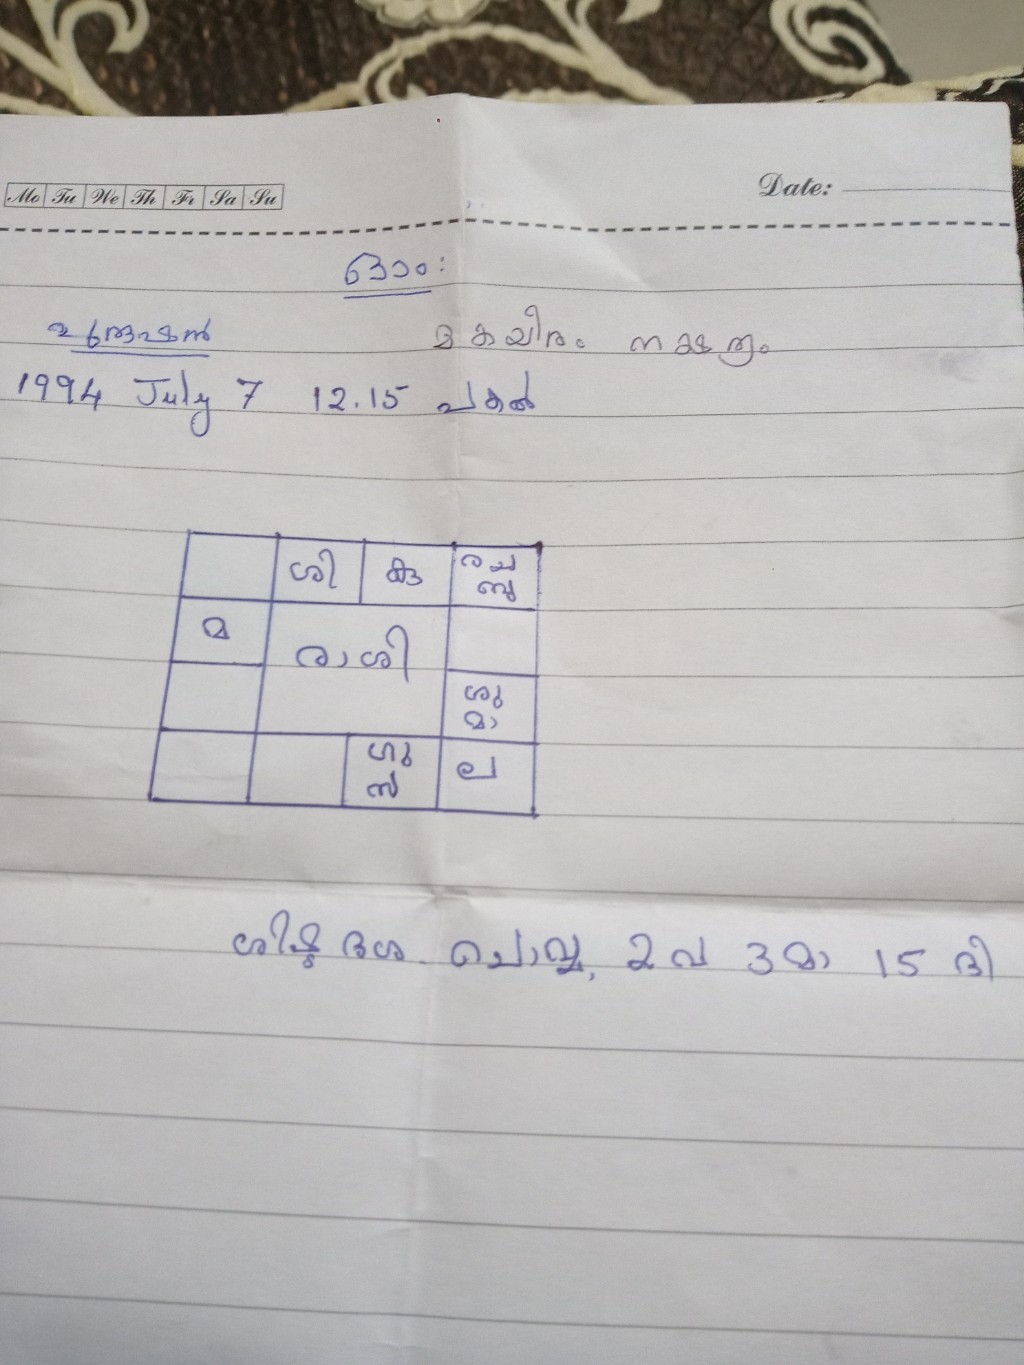 Mo Tu We Th Fr Sa Su Date:
ഓം:
പുരുഷൻ മകയിരം നക്ഷത്രം
1994 July 7 12.15 പകൽ
ശി കു ര ച
ബു
മ രാശി
ശു
മാ
ഗു ല
സ
ശിഷ്ട ദശ. ചൊവ്വ, 2 വ 3 മാ 15 ദി